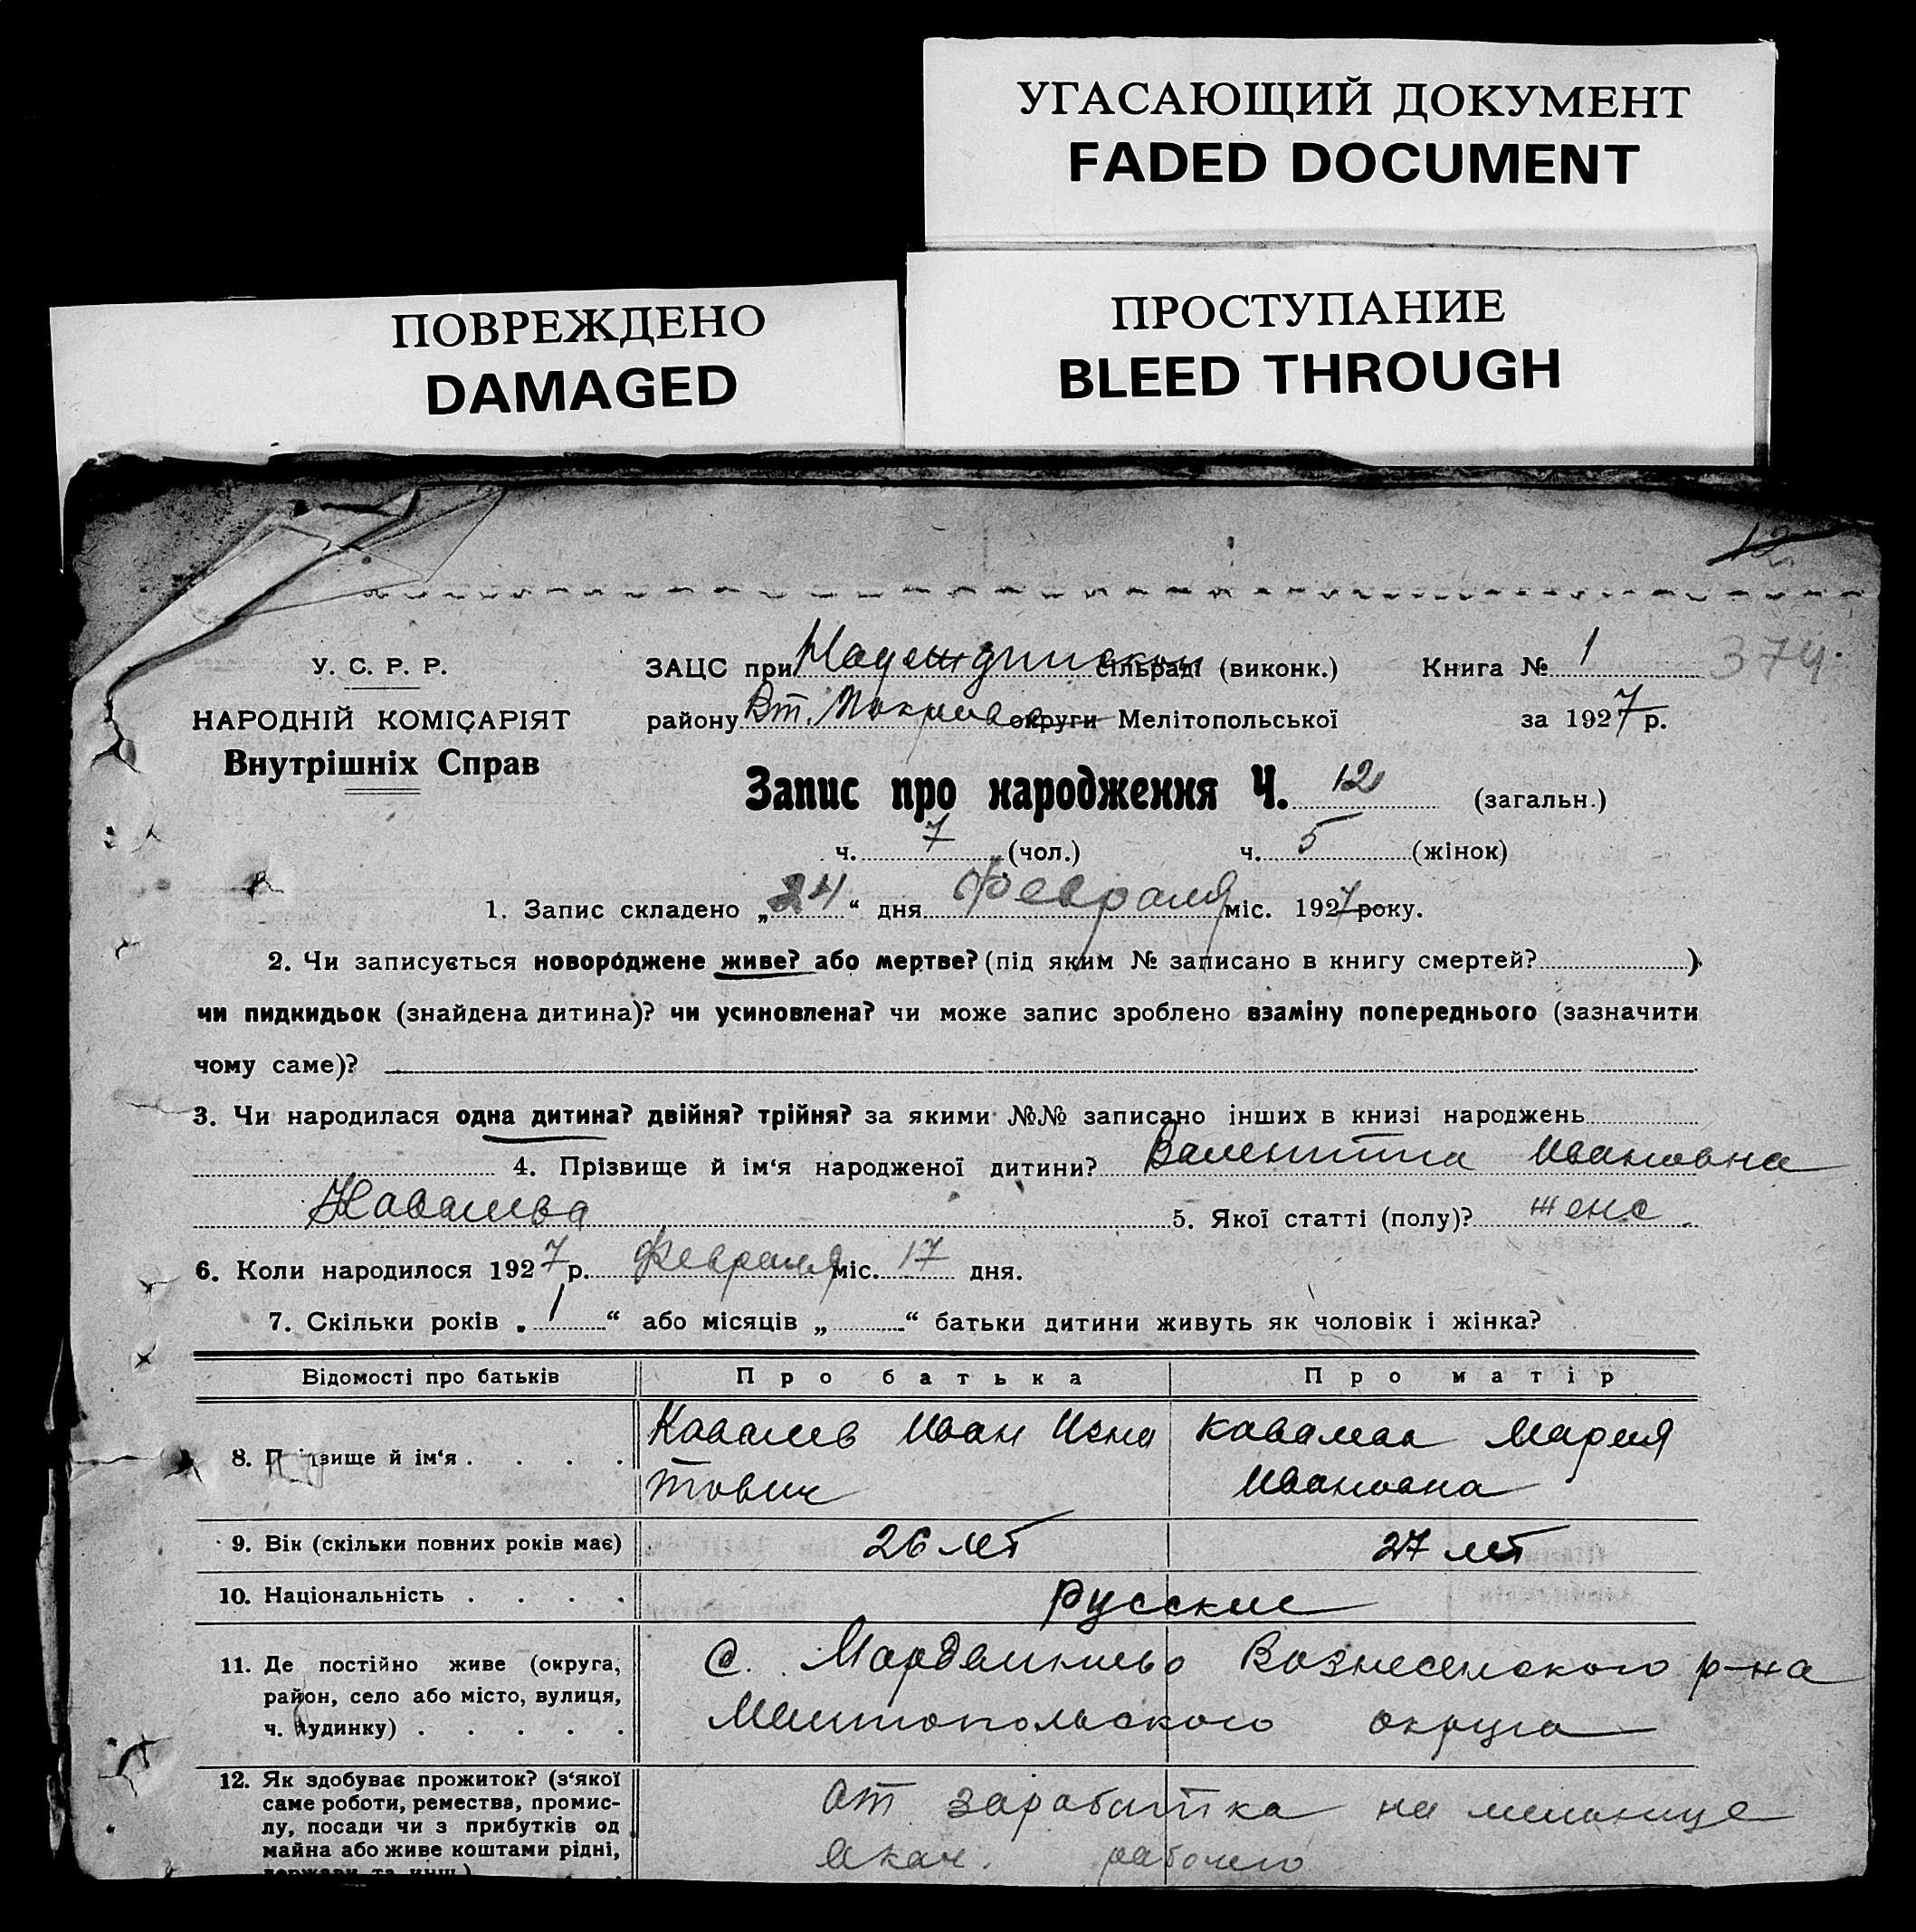 УГАСАЮЩИЙ ДОКУМЕНТ
FADED DOCUMENT
ПОВРЕЖДЕНО
DAMAGED
ПРОСТУПАНИЕ
BLEED THROUGH
12
374.
У. С. Р. Р.
НАРОДНІЙ КОМІСАРІЯТ
Внутрішніх Справ
ЗАЦС при сільраді (виконк.) Книга № 1
району Вт. округи Мелітопольської за 1927 р.
Запис про народження Ч. 12 (загальн.)
ч. 7 (чол.) ч. 5 (жінок)
1. Запис складено „24“ дня Февраля міс. 1927 року.
2. Чи записується новороджене живе? або мертве? (під яким № записано в книгу смертей? )
чи пидкидьок (знайдена дитина)? чи усиновлена? чи може запис зроблено взаміну попереднього (зазначити
чому саме)?
3. Чи народилася одна дитина? двійня? трійня? за якими №№ записано інших в книзі народжень
4. Прізвище й ім‘я народженої дитини? Валентина Ивановна
Кавалева 5. Якої статті (полу)? женс
6. Коли народилося 1927 р. Февраля міс. 17 дня.
7. Скільки років „1“ або місяців „ “ батьки дитини живуть як чоловік і жінка?
Відомості про батьків Про батька Про матір
8. Прізвище й ім‘я . . . . Кавалев Иван Игна Кавалева Мария
тович Ивановна
9. Вік (скільки повних років має) 26 лет 27 лет
10. Національність . . . . русские
11. Де постійно живе (округа, с. Вознесенского р-на
район, село або місто, вулиця, Мелитопольского округа
ч. будинку) . . . . .
12. Як здобуває прожиток? (з‘якої от заработка на мельнице
саме роботи, ремества, промис-
лу, посади чи з прибутків од
майна або живе коштами рідні, рабочего
держави та инш.)